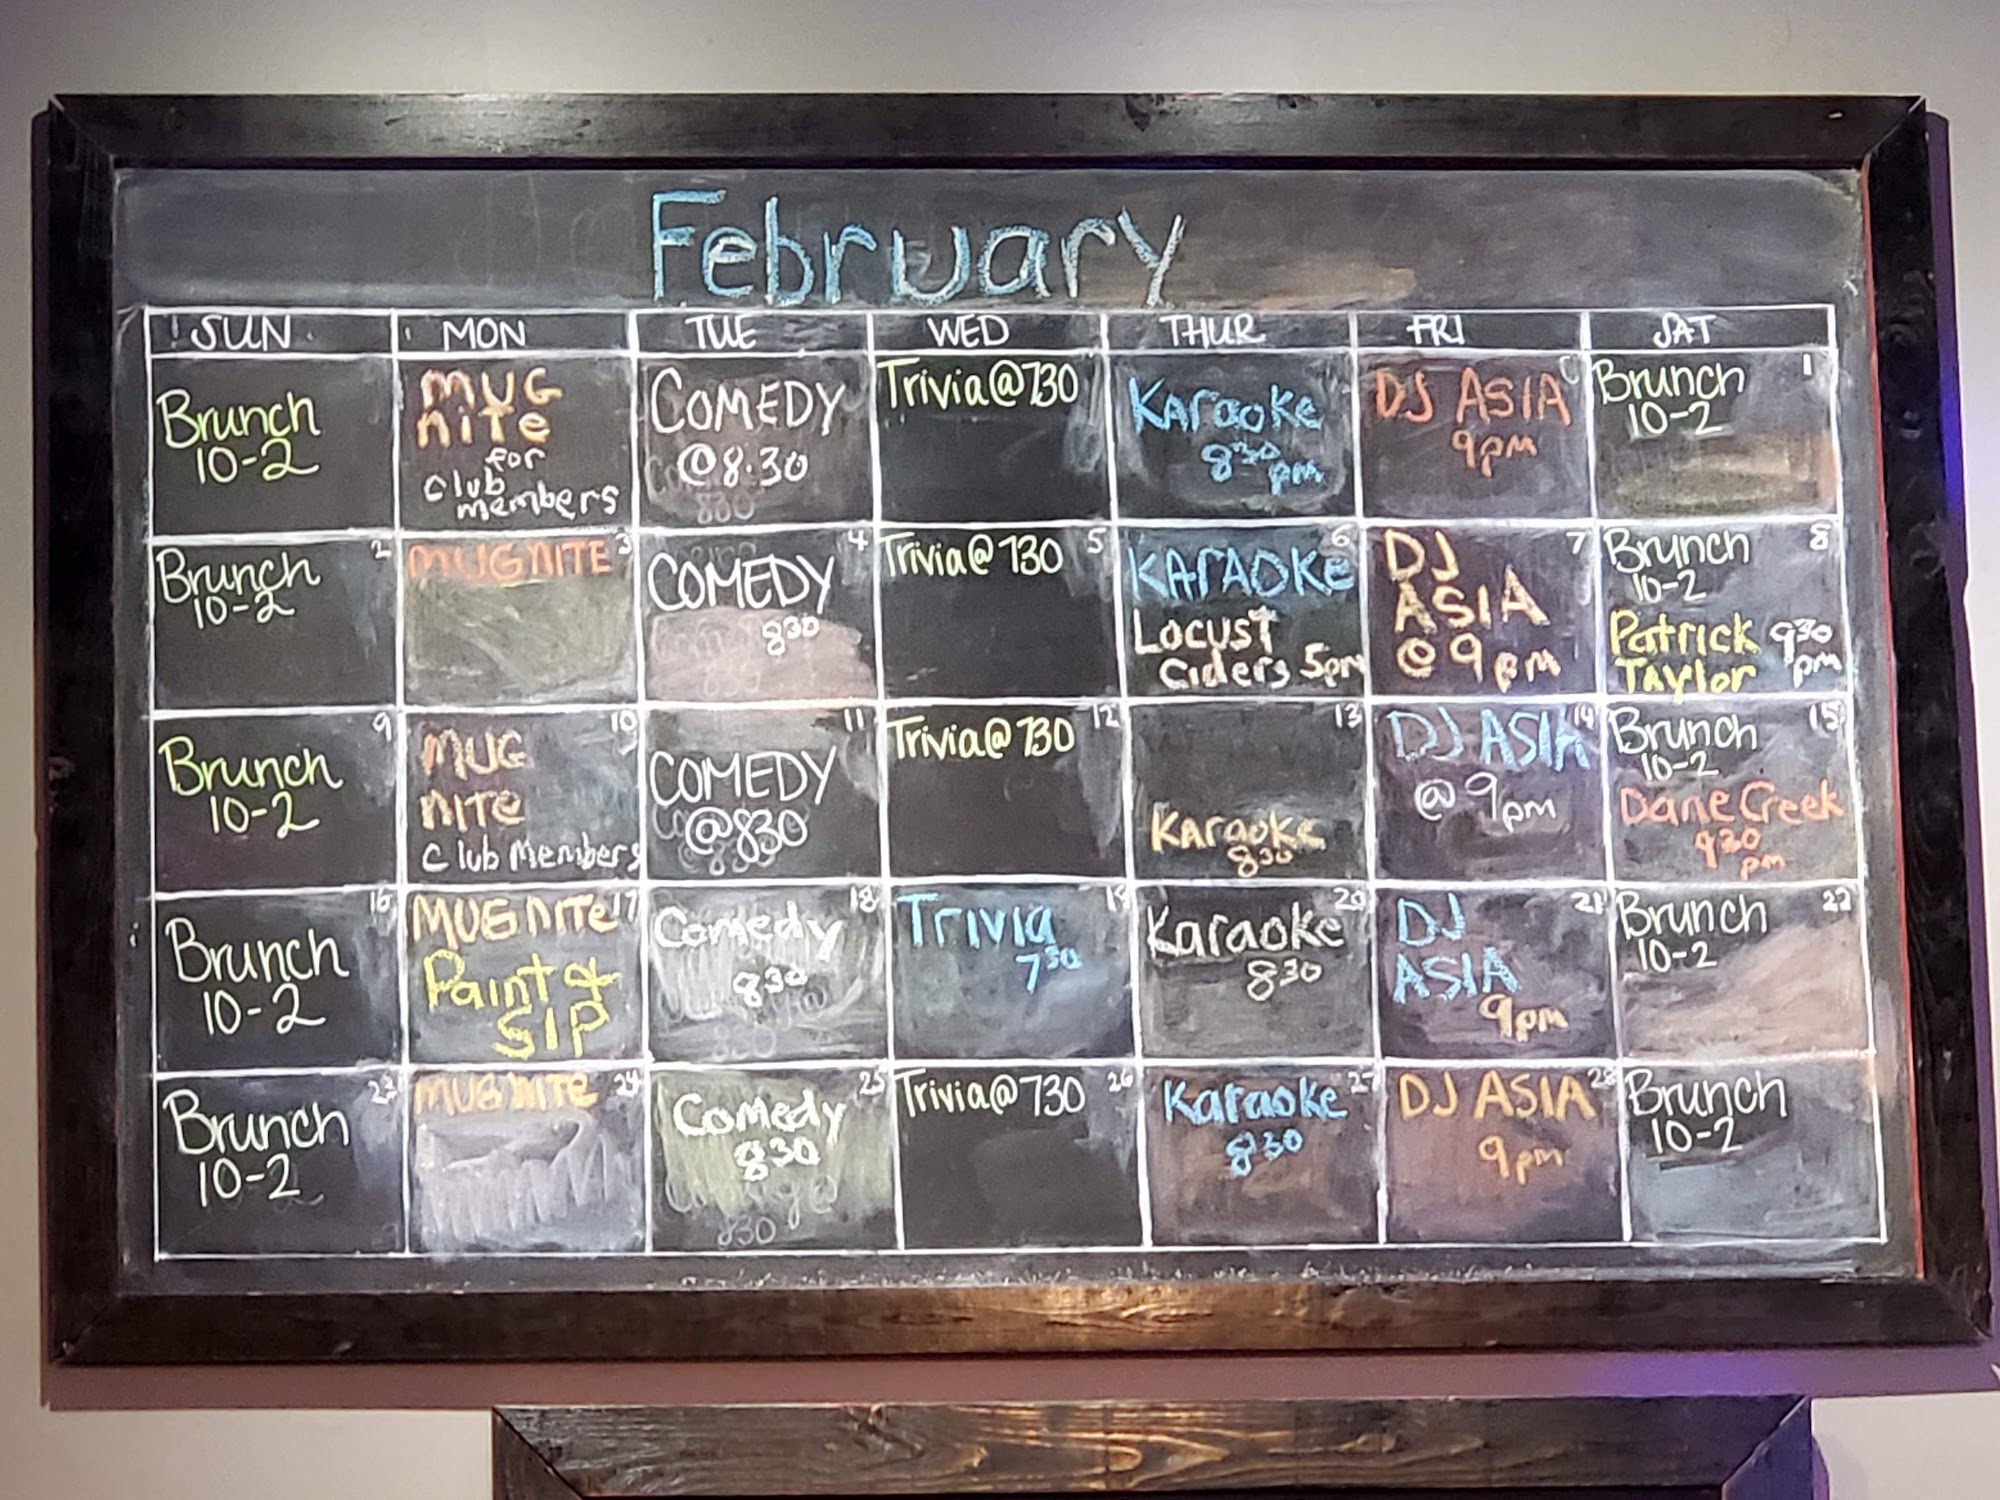 February
SUN
MON
TUE
WED
THUR
FRI
SAT
Brunch
10-2
MUG
nite
for
Club
members
COMEDY
@8:30
Trivia@730
Karaoke
8³⁰
pm
DJ ASIA
9pm
1
Brunch
10-2
2
Brunch
10-2
3
MUG NITE
4
COMEDY
8³⁰
5
Trivia@730
6
KARAOKe
Locust
Ciders 5pm
7
DJ
ASIA
@ 9pm
8
Brunch
10-2
Patrick 9³⁰
Taylor pm
9
Brunch
10-2
10
MUG
NITe
Club Members
11
COMEDY
@830
12
Trivia@730
13
Karaoke
8³⁰
14
DJ ASIA
@ 9pm
15
Brunch
10-2
Dane Creek
9³⁰
pm
16
Brunch
10-2
17
MUG NITe
Paint &
SIP
18
Comedy
8³⁰
19
Trivia
7³⁰
20
Karaoke
8³⁰
21
DJ
ASIA
9pm
22
Brunch
10-2
23
Brunch
10-2
24
MUG NITE
25
Comedy
8³⁰
26
Trivia@730
27
Karaoke
8³⁰
28
DJ ASIA
9pm
Brunch
10-2